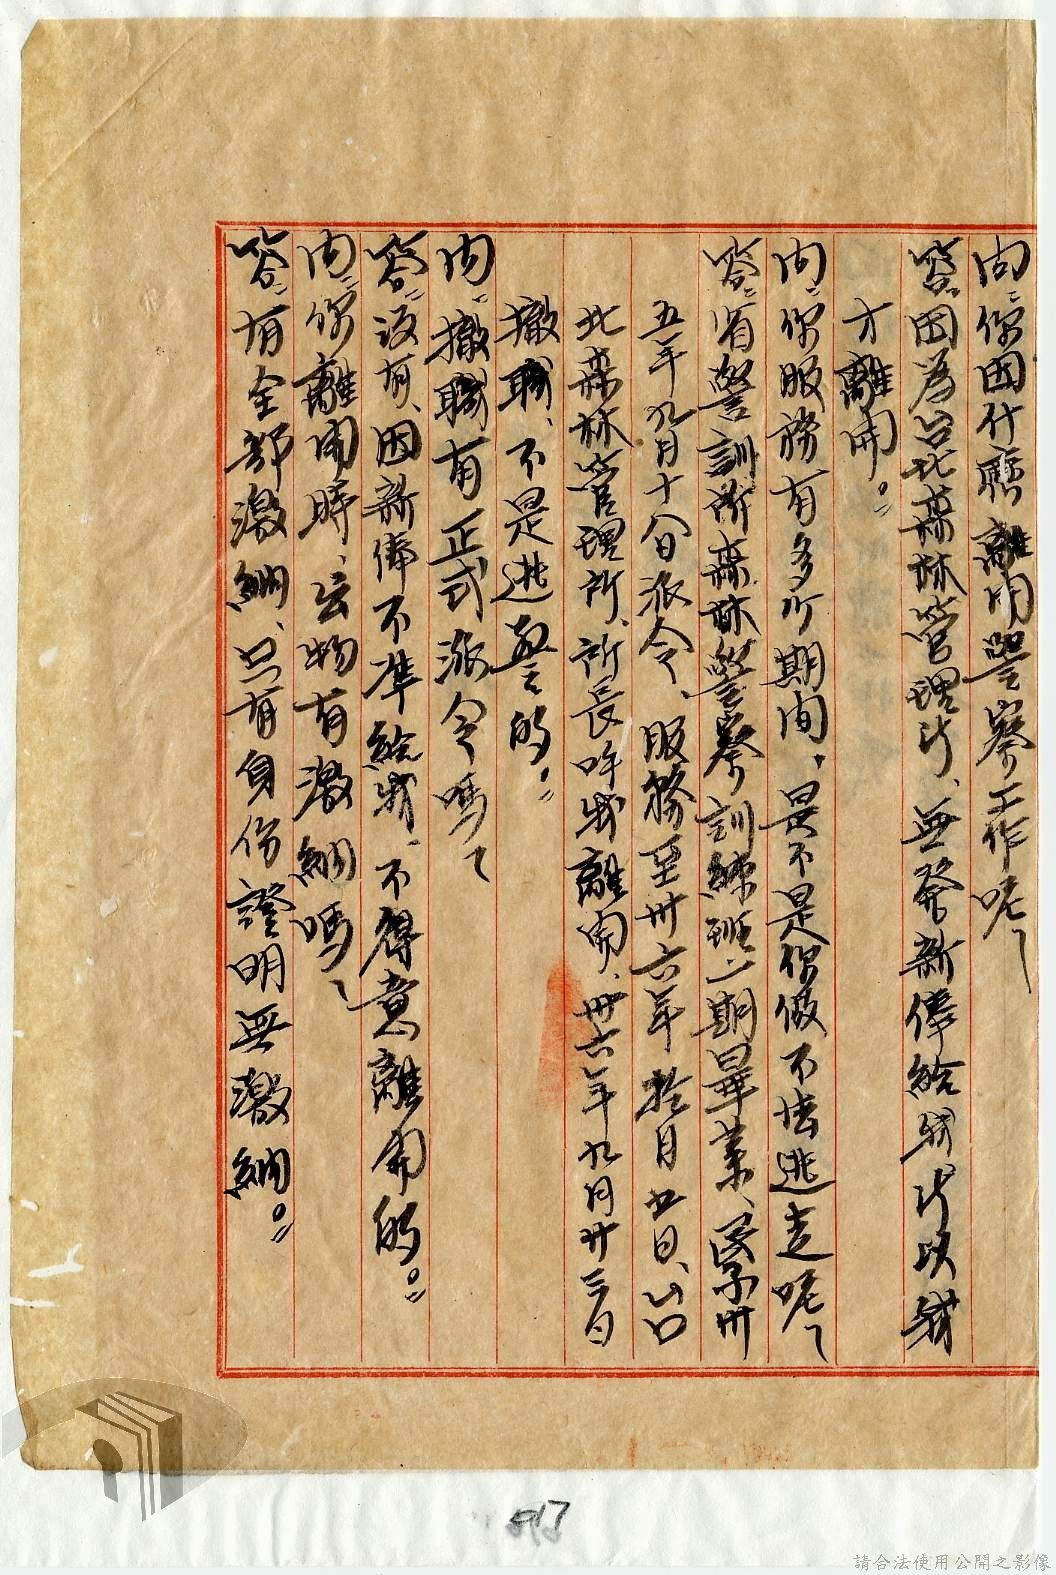 問：你因什麽離開警察工作呢？
答：因為台北森林管理所、無發薪俸給我所以我
才離開。
問：你服務有多少期間，是不是你做不法逃走呢？
答：省警訓所森林警察訓練班二期畢業、民卅
五年九月十八日派令、服務至卅六年拾月廿日、
北森林管理所、所長叫我離開、卅六年九月廿三日
撤職、不是逃警的。
問：撤職有正式派令嗎？
答：沒有、因薪俸不準給我、不得意離開的。
問：你離開時、公物有激納嗎？
答：有全部激納、只有身份證明無激納。
917
請合法使用公開之影像